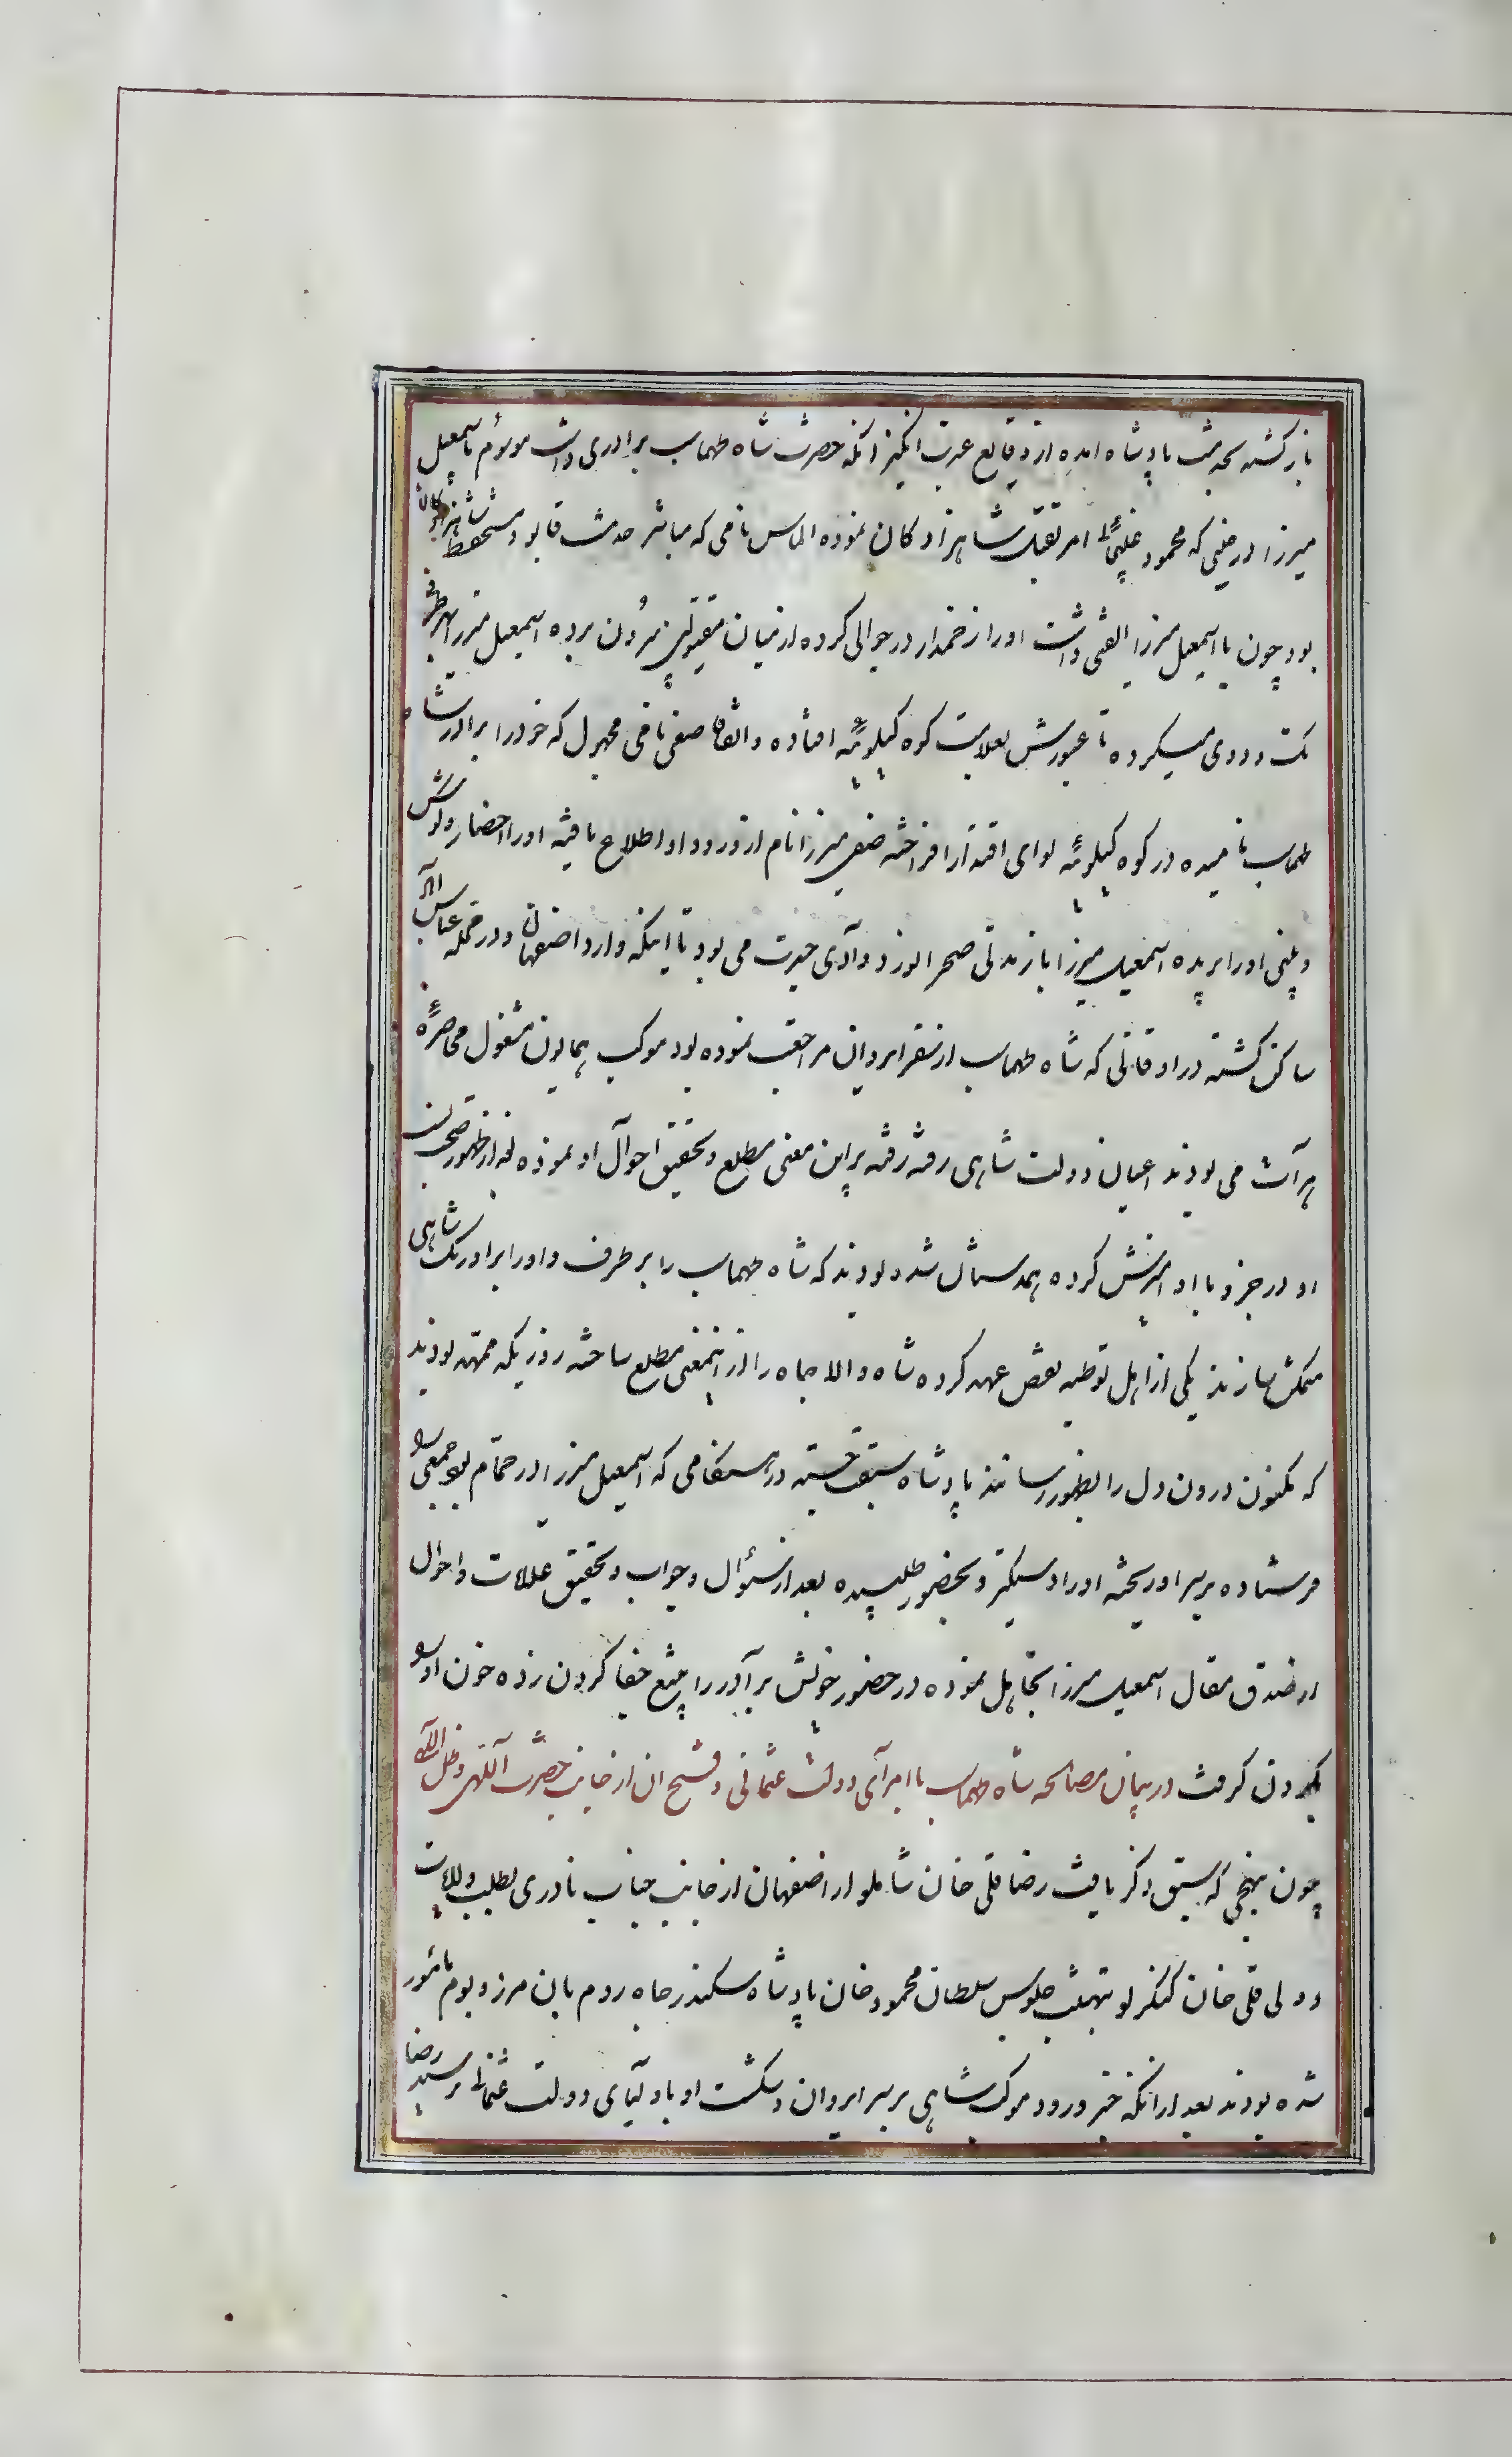 بازگشته بخدمت پادشاه آمده از وقایع عبرت انگیز آنکه حضرت شاه طهماسب برادری داشت موسوم باسمعیل
میرزا در حینی که محمود غلیجائی امر بقتل شاهزادگان نموده الماس نامی که مباشر خدمت قاپو و مستحفظ شاهزادگان
بود چون با اسمعیل میرزا الفتی داشت او را زخمدار در جوالی کرده از میان مقتولین بیرون برده اسمعیل میرزا بهر طرف
تک و دوی میکرده تا عبورش بولایت کوه کیلویه افتاده و اتفاقا صفی نامی مجهول که خود را برادر شاه
طهماسب نامیده در کوه کیلویه لوای اقتدار افراخته صفی میرزا نام از ورود او اطلاع یافته او را احضار و گوش
و بینی او را بریده اسمعیل میرزا باز مدتی صحرانورد وادی حیرت می بود تا اینکه وارد اصفهان و در محله عباس آباد
ساکن گشته در اوقاتی که شاه طهماسب از سفر ایروان مراجعت نموده بود موکب همایون مشغول محاصره
هرات می بودند اعیان دولت شاهی رفته رفته بر این معنی مطلع و تحقیق احوال او نموده بعد از ظهور صحت نسب
او در جزو با او آمیزش کرده همدستان شده بودند که شاه طهماسب را برطرف و او را بر اورنگ شاهی
متمکن سازند یکی از اهل توطیه نقض عهد کرده شاه والاجاه را از اینمعنی مطلع ساخته روزیکه ممهد بودند
که مکنون درون دل را بظهور رسانند پادشاه سبقت جسته در هنگامی که اسمعیل میرزا در حمام بود جمعی را
فرستاده بر سر او ریخته او را دستگیر و بحضور طلبیده بعد از سئوال و جواب و تحقیق علامات و احوال
از صدق مقال اسمعیل میرزا تجاهل نموده در حضور خویش برادر را بتیغ جفا گردن زده خون او را
بگردن گرفت در بیان مصالحه شاه طهماسب با امرای دولت عثمانی و فسخ آن از جانب حضرت آلهی و ظل اللهی
چون بنهجی که سبق ذکر یافت رضا قلی خان شاملو از اصفهان از جانب جناب نادری بطلب ولایات
و ولی قلی خان کنگرلو بتهنیت جلوس سلطان محمود خان پادشاه سکندر جاه روم بآن مرز و بوم مأمور
شده بودند بعد از آنکه خبر ورود موکب شاهی بر سر ایروان و شکست او باولیای دولت عثمانی رسید رضا